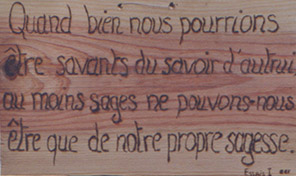 Quand bien nous pourrions
être savants du savoir d'autrui,
au moins sages ne pouvons-nous
être que de notre propre sagesse.